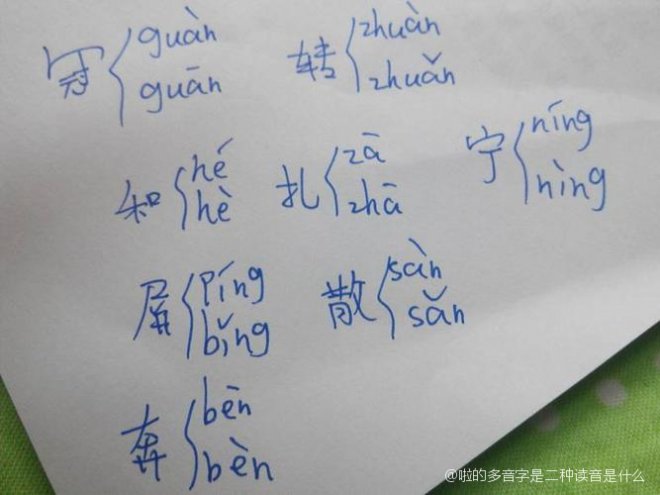 冠 { guàn guān 转 { zhuàn zhuǎn
和 { hé hè 扎 { zā zhā 宁 { níng nìng
屏 { píng bǐng 散 { sàn sǎn
奔 { bèn bèn
@啦的多音字是二种读音是什么